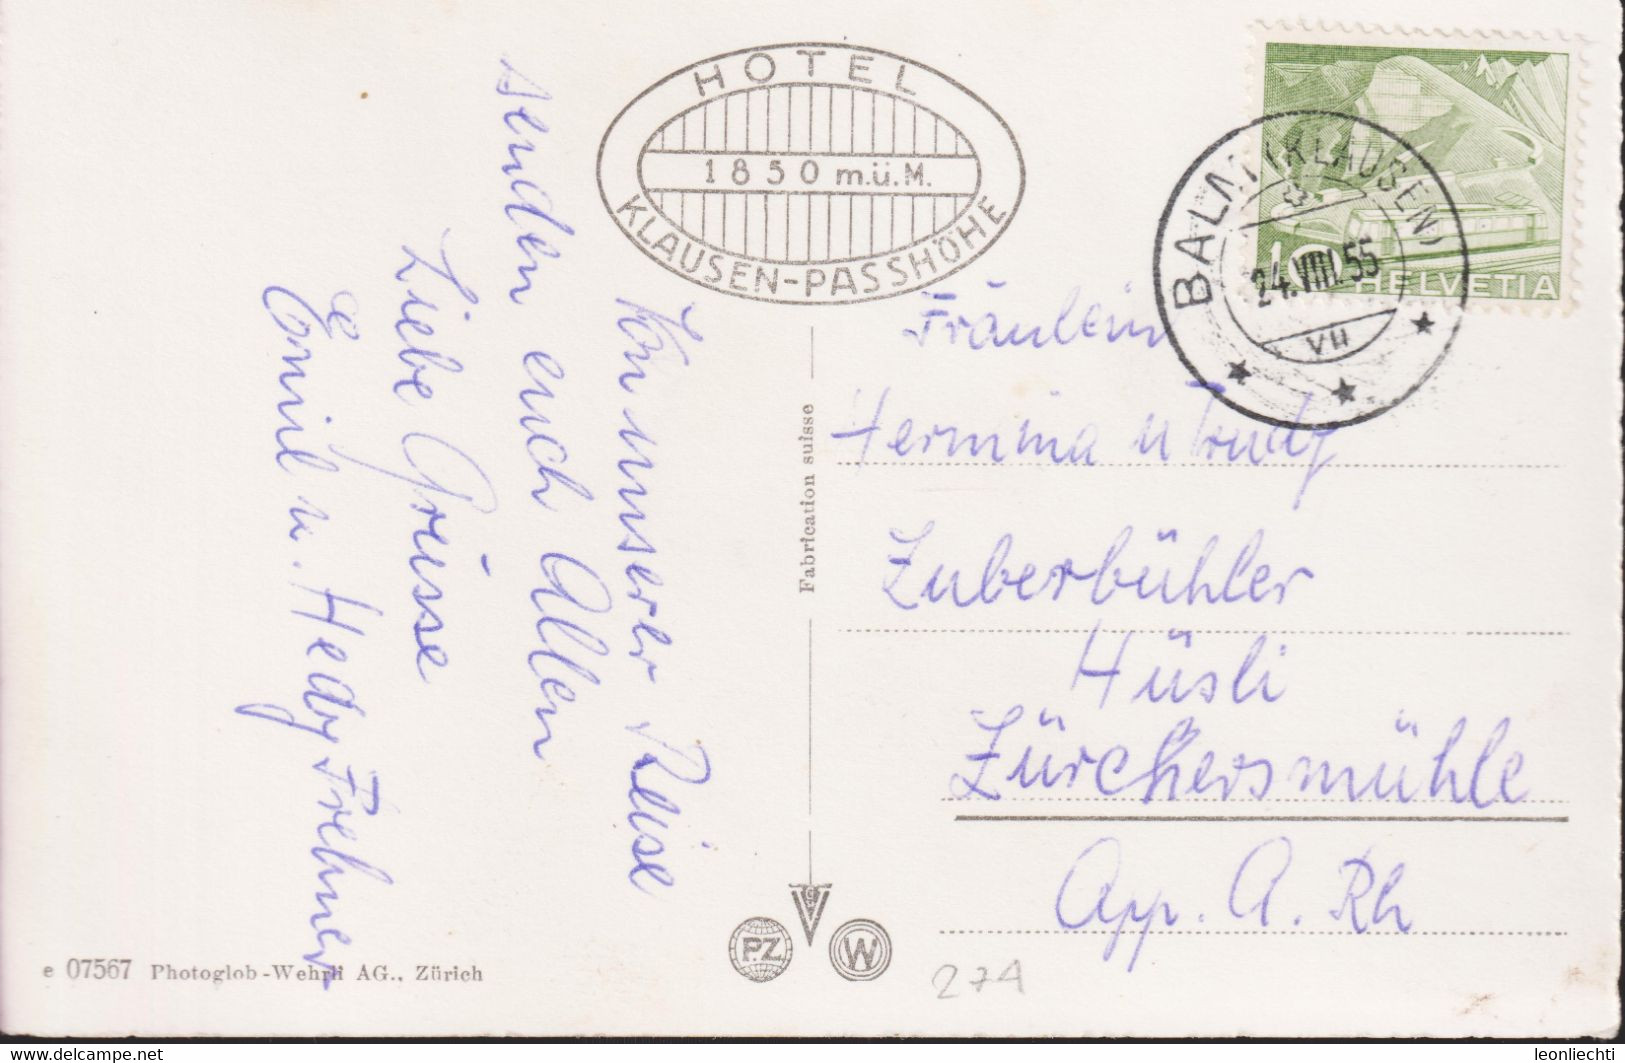 HOTEL
1850 m.ü.M.
KLAUSEN-PASSHÖHE
BALM (KLAUSEN)
24.VIII.55
VII
10 HELVETIA
Von unserer Reise
senden euch Allen
Liebe Grüsse
Emil u. Hedy Frehner
Fabrication suisse
Fräulein
Hermina u Trudy
Zuberbühler
Hüsli
Zürchersmühle
App. A. Rh
P.Z.
W
274
e 07567 Photoglob-Wehrli AG., Zürich
www.delcampe.net
leonliechti